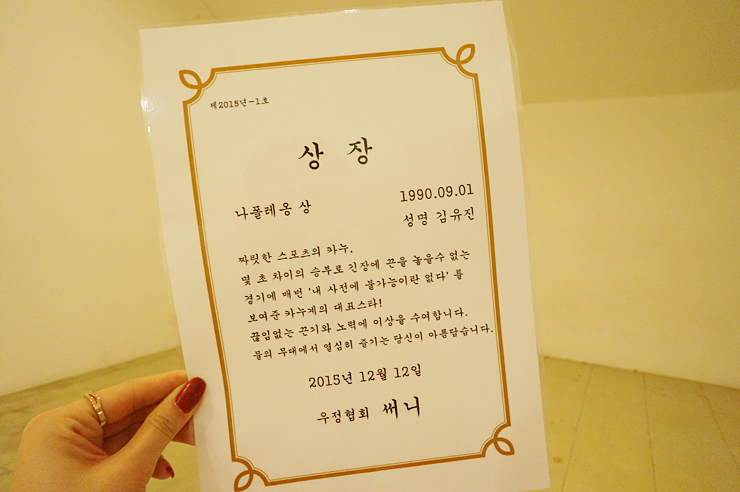 제2015년-1호
상 장
나폴레옹 상
1990.09.01
성명 김유진
짜릿한 스포츠의 카누.
몇 초 차이의 승부로 긴장에 끈을 놓을수 없는
경기에 매번 '내 사전에 불가능이란 없다' 를
보여준 카누계의 대표스타!
끊임없는 끈기와 노력에 이상을 수여합니다.
물의 무대에서 열심히 즐기는 당신이 아름답습니다.
2015년 12월 12일
우정협회 써니